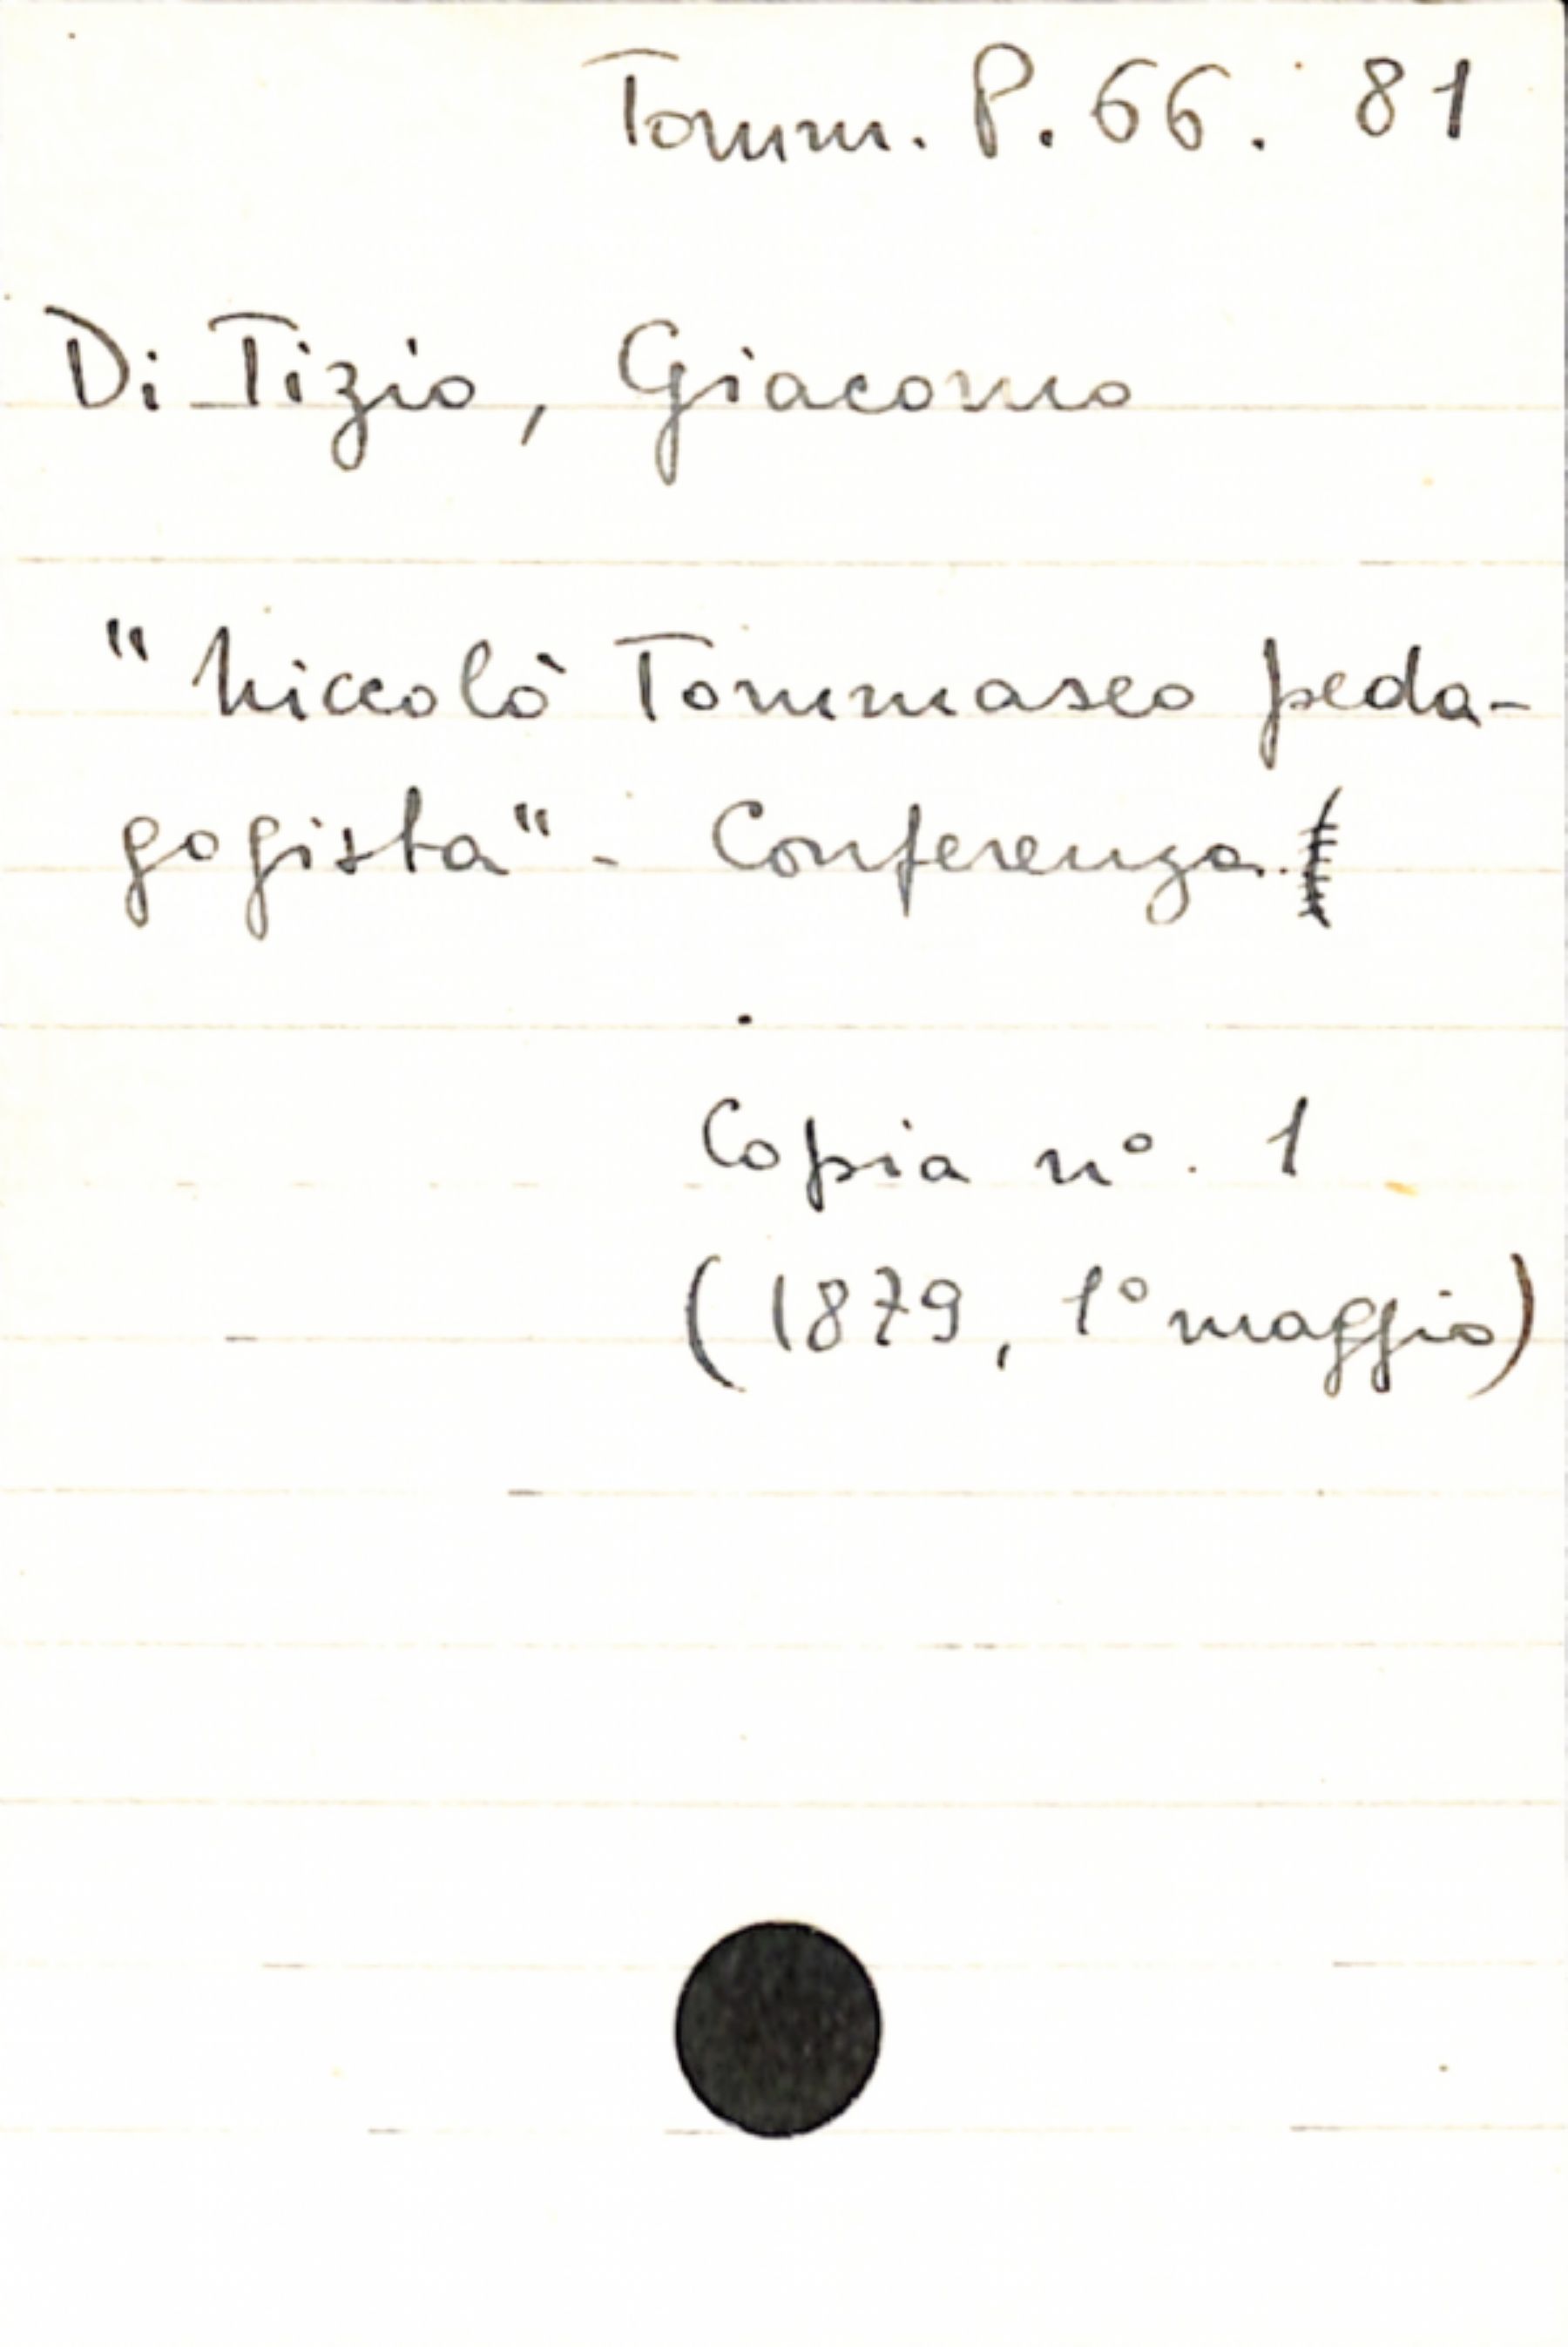 Tomm. P. 66. 81
Di Tizio, Giacomo
"Niccolò Tommaseo peda-
gogista" - Conferenza.
Copia n°. 1
(1879, 1° maggio)